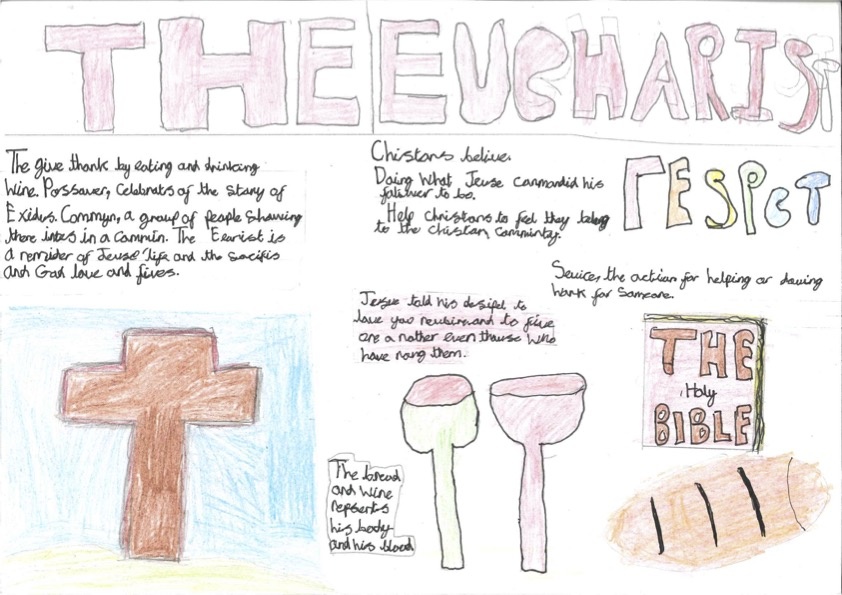 THE EUCHARIST
The give thank by eating and drinking
Wine. Possauer, Celebrats of the story of
Exidus. Commyn, a group of people Shawing
there intes in a Commin. The Eearist is
a remider of Jeuse life and the Sacifis
and God love and fives.
Chistans belive.
Doing What Jeuse Canmandid his
fallower to bo.
Help christans to feel they belog
to the Chistan Comminty.
rESPCT
Sevices, the actrian for helping or dawing
hank for Someone.
Jersue told his desipel to
love you neubirn and to five
are a nather even thause who
have rong them.
THE
Holy
BIBLE
The bread
and Wine
repserts
his body
and his blood